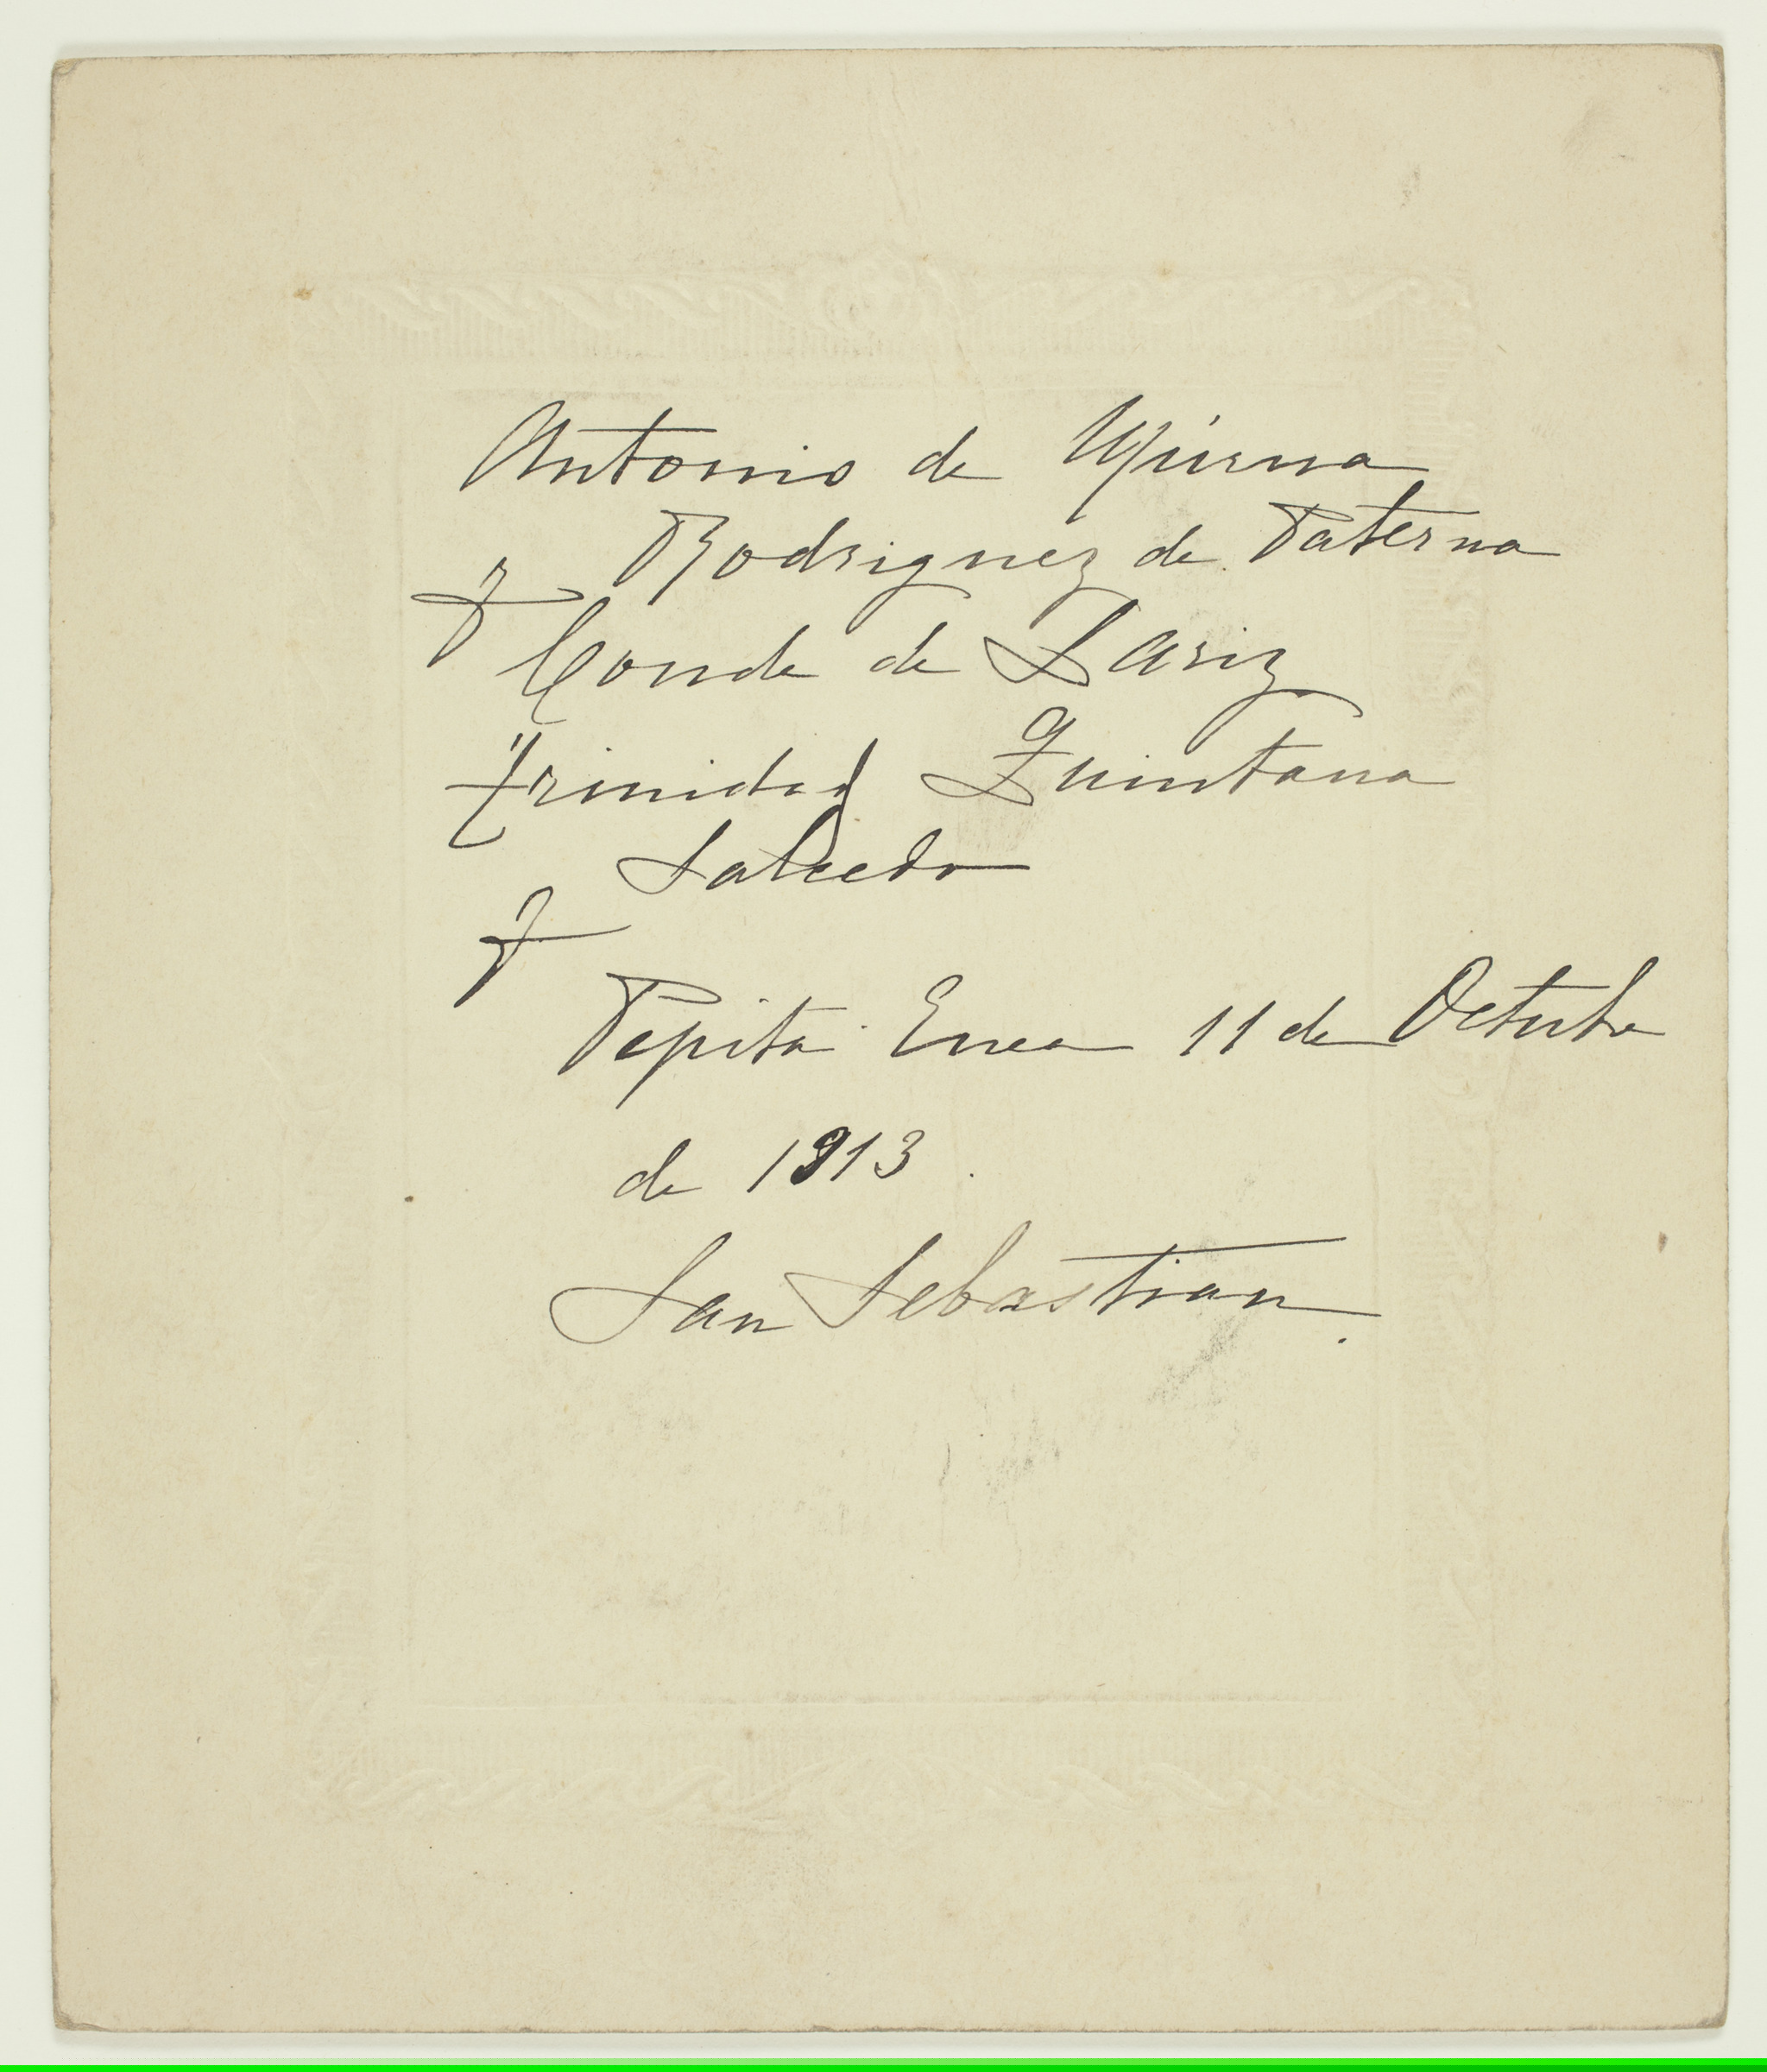 Antonio de
Rodriguez de Paterna
y
Conde de Lariz
Trinidad Quintana
Salcedo
y
Pepita Enea 11 de Octubre
de 1913.
San Sebastian.